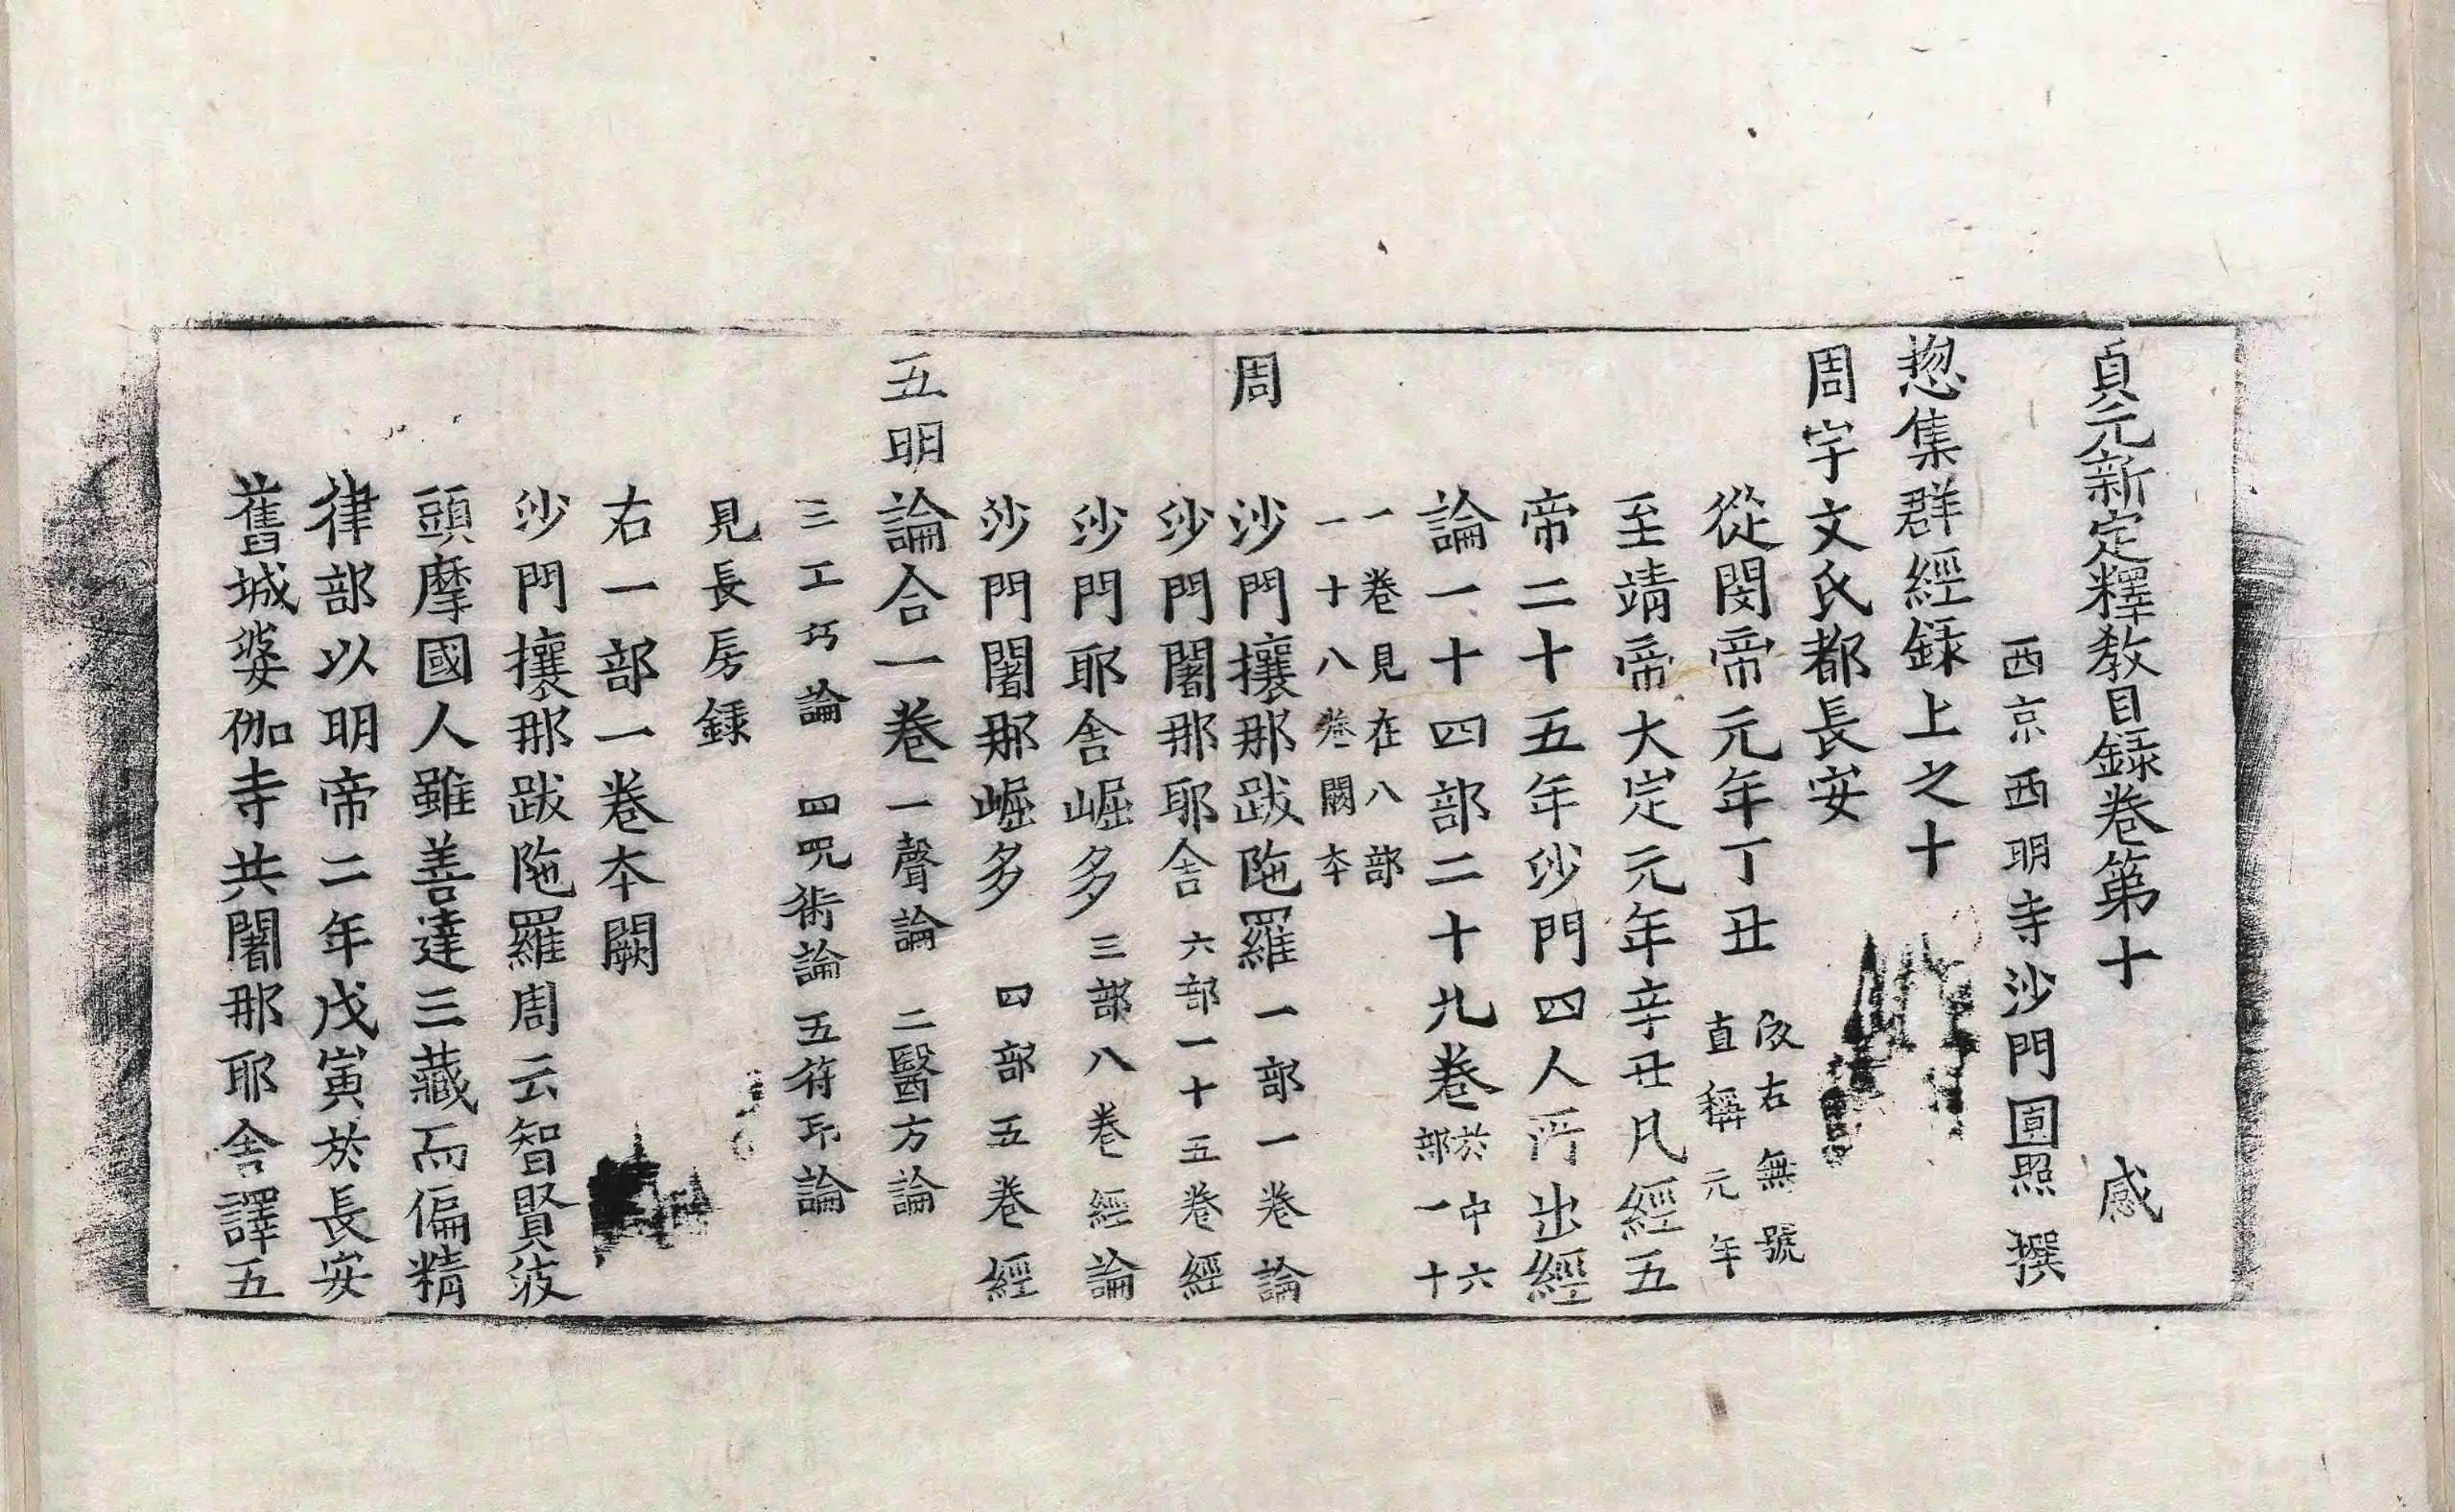 貞元新定釋教目録卷第十　感
西京西明寺沙門圓照撰
揔集群經録上之十
周宇文氏都長安
從閔帝元年丁丑
依右無號
直稱元年
至靖帝大定元年辛丑凡經五
帝二十五年沙門四人所出經
論一十四部二十九卷
於中六
部一十
一卷見在八部
一十八卷闕本
周　沙門攘那跋陁羅一部一卷論
沙門闍那耶舍六部一十五卷經
沙門耶舍崛多三部八卷經論
沙門闍那崛多四部五卷經
五明論合一卷一聲論二醫方論
三工巧論四呪術論五符印論
見長房録
右一部一卷本闕
沙門攘那跋陁羅周云智賢波
頭摩國人雖善達三藏而偏精
律部以明帝二年戊寅於長安
舊城婆伽寺共闍那耶舍譯五